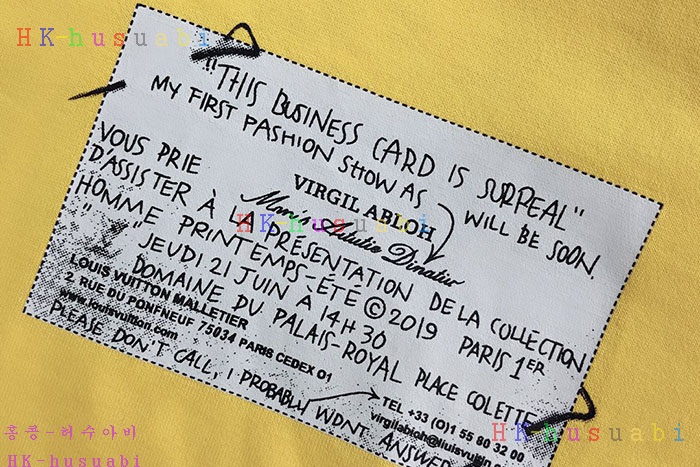 HK-husuabi
"THIS BUSINESS CARD IS SURREAL"
MY FIRST FASHION SHOW AS WILL BE SOON.
VIRGIL ABLOH
VOUS PRIE
HK-husuabi
D'ASSISTER À LA PRÉSENTATION DE LA COLLECTION
HOMME PRINTEMPS-ÉTÉ © 2019 PARIS 1ER
" " JEUDI 21 JUIN A 14H30
DOMAINE DU PALAIS-ROYAL PLACE COLETTE
LOUIS VUITTON MALLETIER
2, RUE DU PONFNEUF 75034 PARIS CEDEX 01
www.louisvuitton.com
TEL +33 (0)1 55 80 32 00
virgilabloh@liuisvuitton
PLEASE DON'T CALL, I PROBABLY WONT ANSWER
HK-husuabi
홍콩-허수아비
HK-husuabi